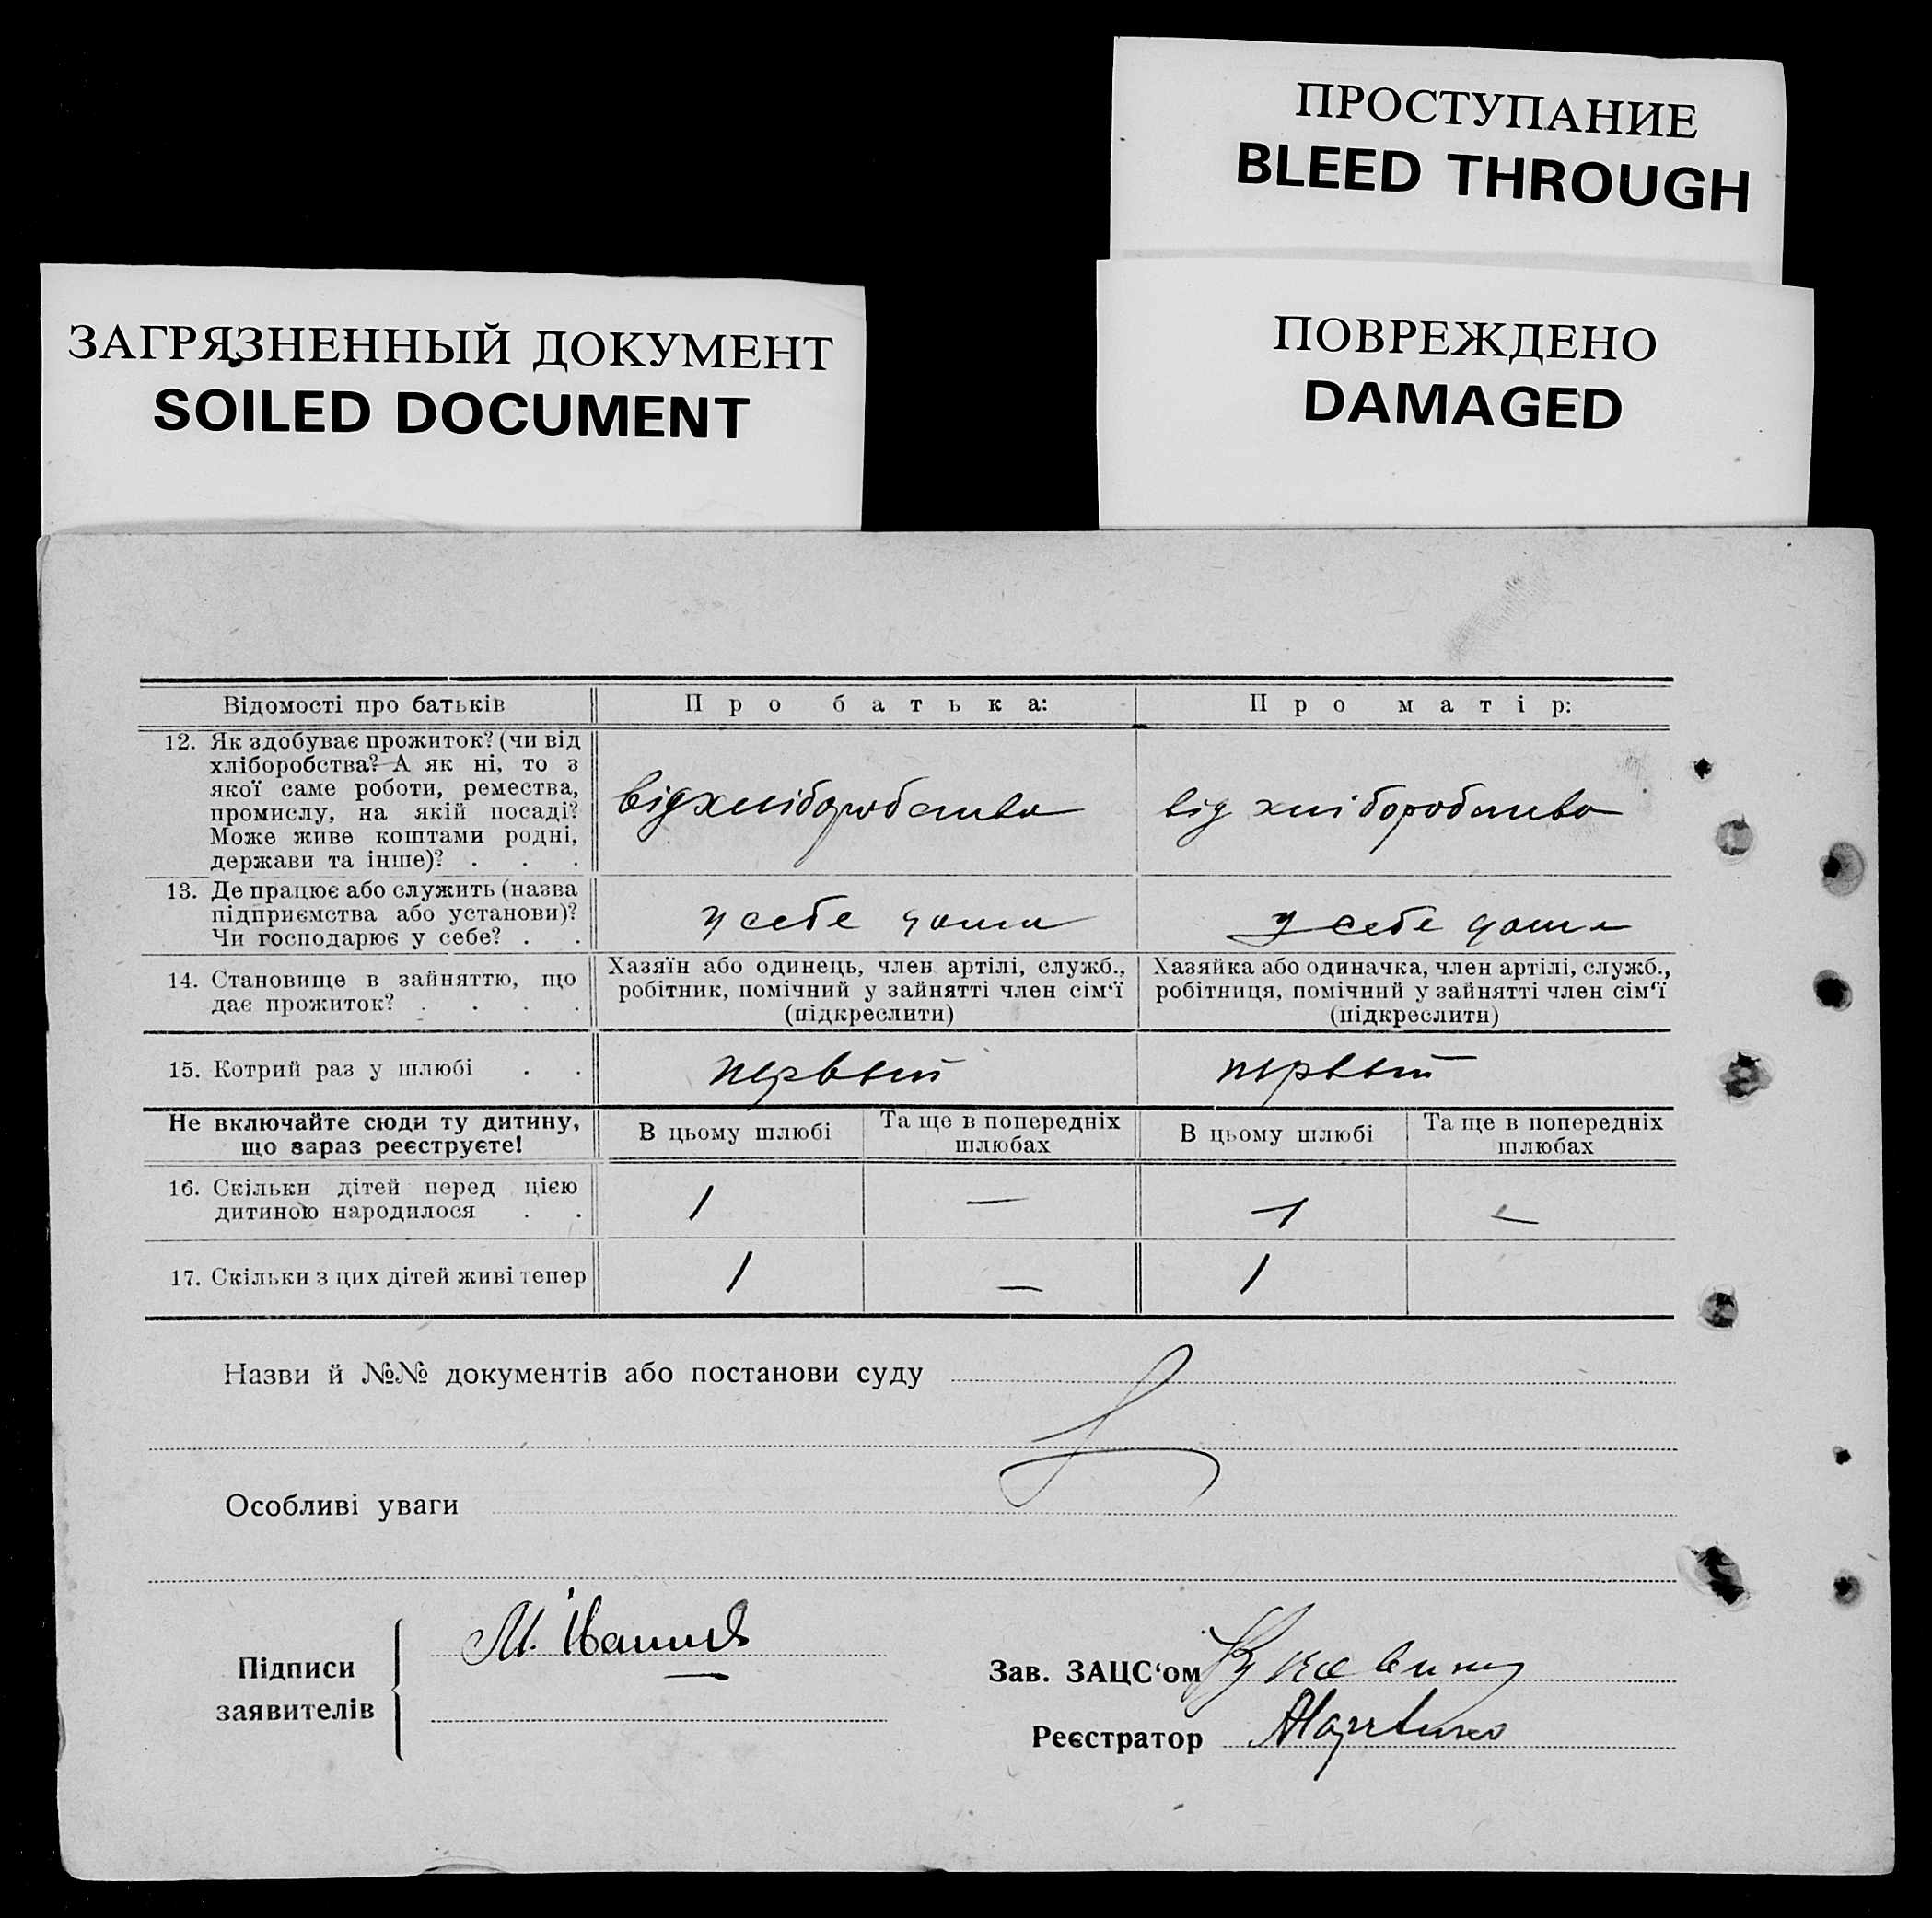 ПРОСТУПАНИЕ
BLEED THROUGH
ЗАГРЯЗНЕННЫЙ ДОКУМЕНТ
SOILED DOCUMENT
ПОВРЕЖДЕНО
DAMAGED
Відомості про батьків
Про батька:
Про матір:
12. Як здобуває прожиток? (чи від
хліборобства? А як ні, то з
якої саме роботи, ремества,
промислу, на якій посаді?
Може живе коштами родні,
держави та інше)? . . .
від хліборобства
від хліборобства
13. Де працює або служить (назва
підприємства або установи)?
Чи господарює у себе? . .
у себе дома
у себе дома
14. Становище в зайняттю, що
дає прожиток? . . . .
Хазяїн або одинець, член артілі, служб.,
робітник, помічний у зайнятті член сім'ї
(підкреслити)
Хазяйка або одиначка, член артілі, служб.,
робітниця, помічний у зайнятті член сім'ї
(підкреслити)
15. Котрий раз у шлюбі . .
первый
первый
Не включайте сюди ту дитину,
що зараз реєструєте!
В цьому шлюбі
Та ще в попередніх
шлюбах
В цьому шлюбі
Та ще в попередніх
шлюбах
16. Скільки дітей перед цією
дитиною народилося . .
1
—
1
—
17. Скільки з цих дітей живі тепер
1
—
1
Назви й №№ документів або постанови суду
Особливі уваги
Підписи
заявителів
М.
Зав. ЗАЦС'ом
Реєстратор